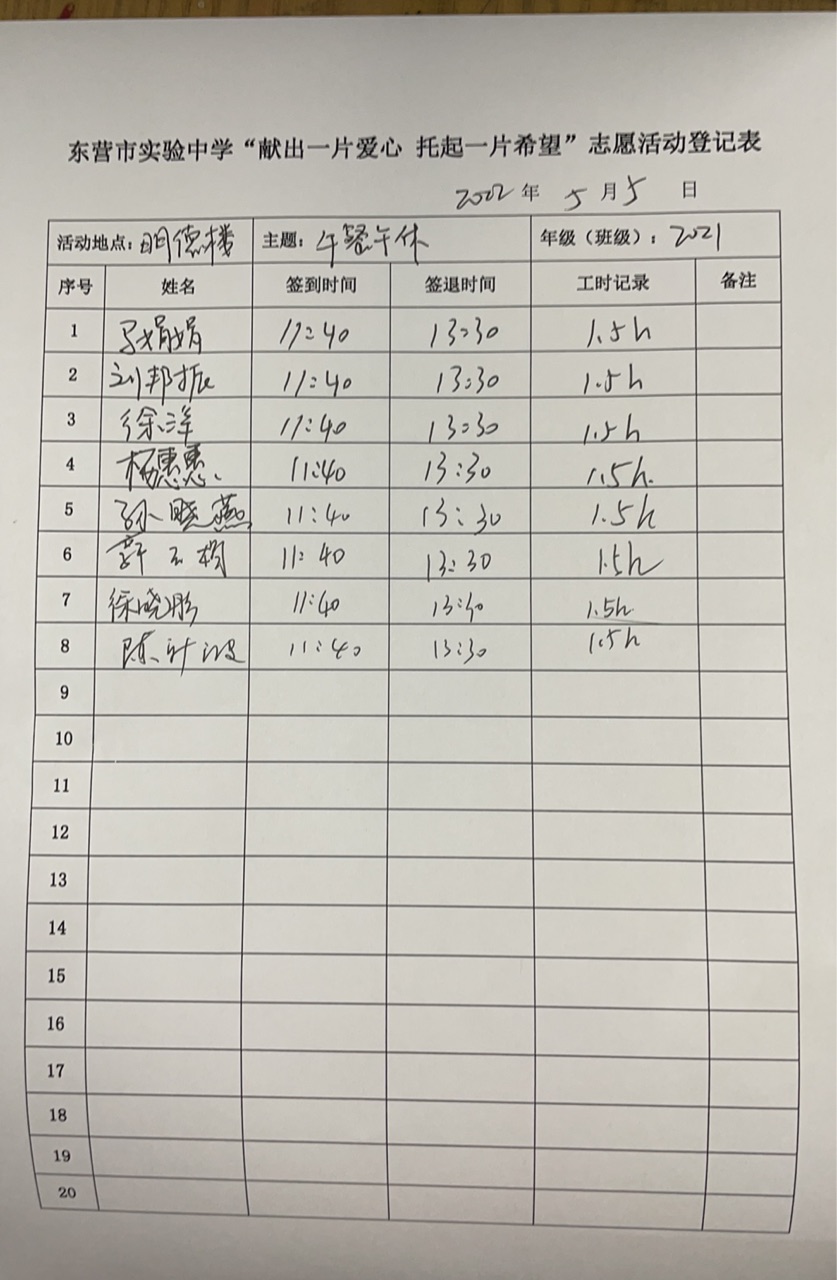 东营市实验中学“献出一片爱心 托起一片希望”志愿活动登记表
2022 年 5 月 5 日
活动地点：明德楼 主题：午餐午休 年级（班级）：2021
序号 姓名 签到时间 签退时间 工时记录 备注
1 娟娟 11:40 13:30 1.5h
2 刘邦振 11:40 13:30 1.5h
3 徐洋 11:40 13:30 1.5h
4 杨惠惠 11:40 13:30 1.5h.
5 孙晓燕 11:40 13:30 1.5h
6 11:40 13:30 1.5h
7 徐晓彤 11:40 13:30 1.5h
8 陈 11:40 13:30 1.5h
9
10
11
12
13
14
15
16
17
18
19
20